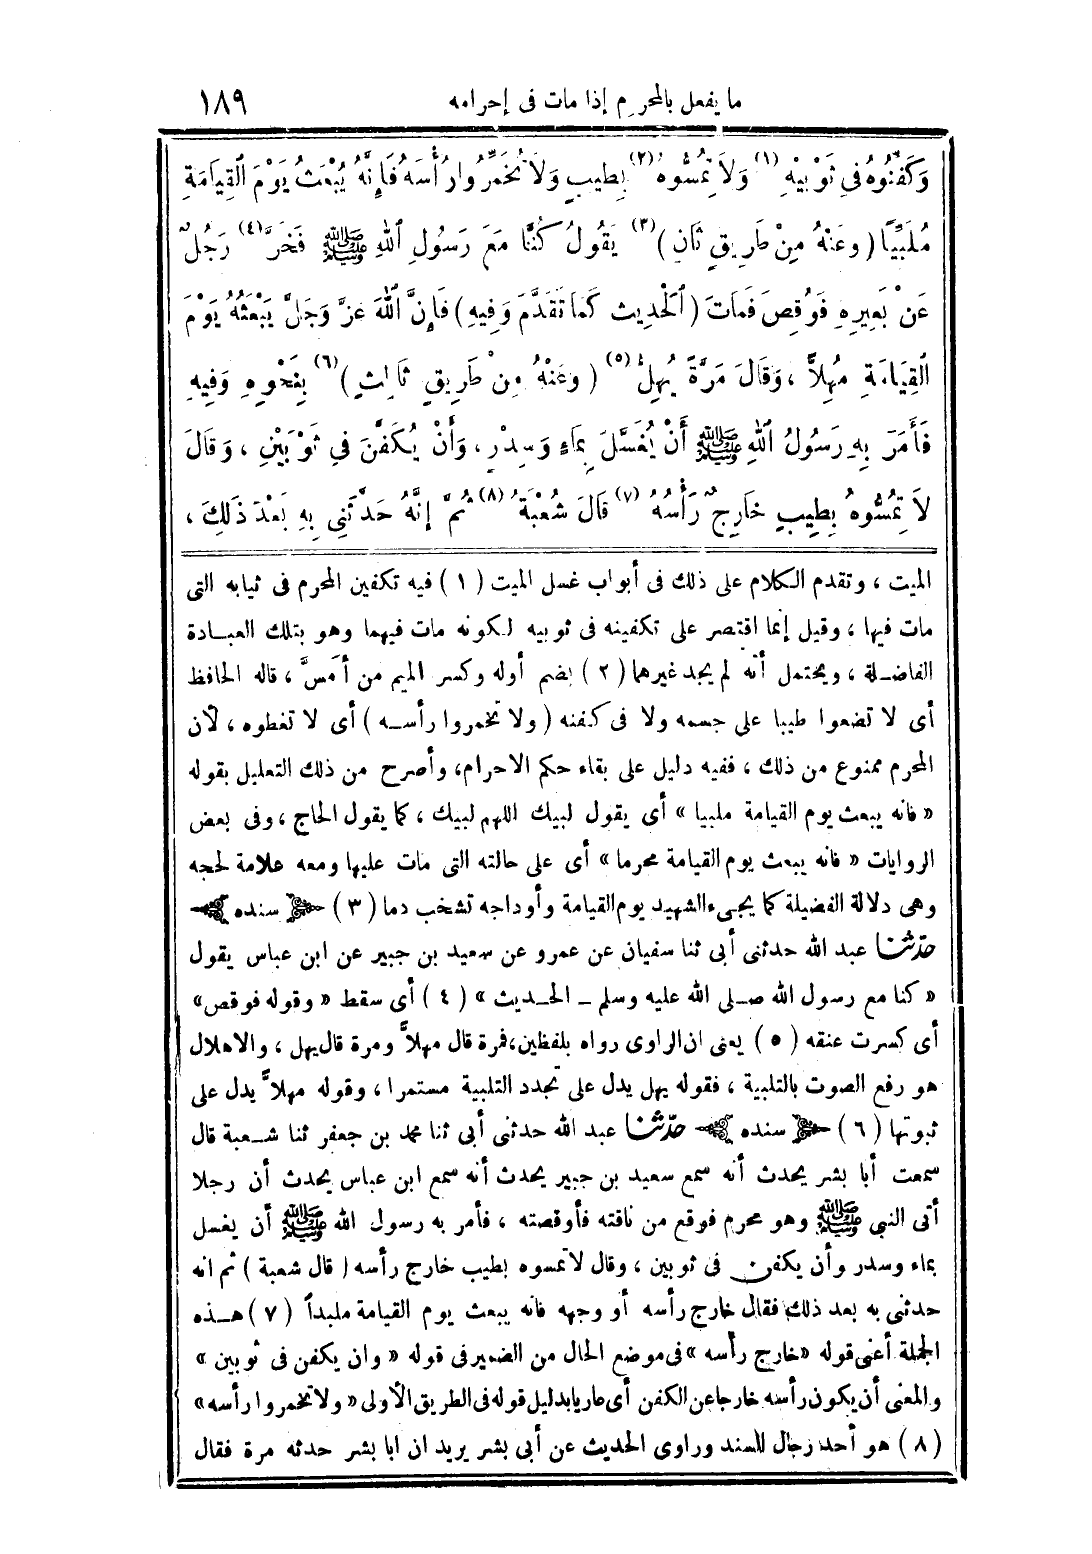 ما يفعل بالمحرم إذا مات فى إحرامه ١٨٩
وَكَفِّنُوهُ فِى ثَوْبَيْهِ (١) وَلاَ تُمِسُّوهُ (٢) بِطِيبٍ وَلاَ تُخَمِّرُوا رَأْسَهُ فَإِنَّهُ يُبْعَثُ يَوْمَ الْقِيَامَةِ
مُلَبِّيًا (وَعَنْهُ مِنْ طَرِيقٍ ثَانٍ) (٣) يَقُولُ كُنَّا مَعَ رَسُولِ اللهِ ﷺ فَخَرَّ (٤) رَجُلٌ
عَنْ بَعِيرِهِ فَوُقِصَ فَمَاتَ (الْحَدِيث كَمَا تَقَدَّمَ وَفِيهِ) فَإِنَّ اللهَ عَزَّ وَجَلَّ يَبْعَثُهُ يَوْمَ
الْقِيَامَةِ مُهِلاًّ ، وَقَالَ مَرَّةً يُهِلُّ (٥) (وَعَنْهُ مِنْ طَرِيقٍ ثَالِثٍ) (٦) بِنَحْوِهِ وَفِيهِ
فَأَمَرَ بِهِ رَسُولُ اللهِ ﷺ أَنْ يُغَسَّلَ بِمَاءٍ وَسِدْرٍ ، وَأَنْ يُكَفَّنَ فِى ثَوْبَيْنِ ، وَقَالَ
لاَ تُمِسُّوهُ بِطِيبٍ خَارِجٌ رَأْسُهُ (٧) قَالَ شُعْبَةُ (٨) ثُمَّ إِنَّهُ حَدَّثَنِى بِهِ بَعْدَ ذَلِكَ ،
الميت ، وتقدم الكلام على ذلك فى أبواب غسل الميت (١) فيه تكفين المحرم فى ثيابه التى
مات فيها ، وقيل إنما اقتصر على تكفينه فى ثوبيه لكونه مات فيهما وهو بتلك العبادة
الفاضلة ، ويحتمل أنه لم يجد غيرهما (٢) بضم أوله وكسر الميم من أمَسَّ ، قاله الحافظ
أى لا تضعوا طيبا على جسمه ولا فى كفنه (ولا تخمروا رأسه) أى لا تغطوه ، لأن
المحرم ممنوع من ذلك ، ففيه دليل على بقاء حكم الاحرام، وأصرح من ذلك التعليل بقوله
« فانه يبعث يوم القيامة ملبيا » أى يقول لبيك اللهم لبيك ، كما يقول الحاج ، وفى بعض
الروايات « فانه يبعث يوم القيامة محرما » أى على حالته التى مات عليها ومعه علامة لحجه
وهى دلالة الفضيلة كما يجىء الشهيد يوم القيامة وأوداجه تشخب دما (٣) سنده
حدّثنا عبد الله حدثنى أبى ثنا سفيان عن عمرو عن سعيد بن جبير عن ابن عباس يقول
« كنا مع رسول الله صلى الله عليه وسلم ـ الحديث » (٤) أى سقط « وقوله فوقص»
أى كسرت عنقه (٥) يعنى ان الراوى رواه بلفظين، فمرة قال مهلاًّ ومرة قال يهل ، والاهلال
هو رفع الصوت بالتلبية ، فقوله يهل يدل على تجدد التلبية مستمرا ، وقوله مهلاًّ يدل على
ثبوتها (٦) سنده حدّثنا عبد الله حدثنى أبى ثنا محمد بن جعفر ثنا شعبة قال
سمعت أبا بشر يحدث أنه سمع سعيد بن جبير يحدث أنه سمع ابن عباس يحدث أن رجلا
أتى النبى ﷺ وهو محرم فوقع من ناقته فأوقصته ، فأمر به رسول الله ﷺ أن يغسل
بماء وسدر وأن يكفن فى ثوبين ، وقال لا تمسوه بطيب خارج رأسه (قال شعبة) ثم انه
حدثنى به بعد ذلك فقال خارج رأسه أو وجهه فانه يبعث يوم القيامة ملبداً (٧) هذه
الجملة أعنى قوله «خارج رأسه » فى موضع الحال من الضمير فى قوله « وان يكفن فى ثوبين »
والمعنى أن يكون رأسه خارجا عن الكفن أى عاريا بدليل قوله فى الطريق الأولى « ولا تخمروا رأسه»
(٨) هو أحد رجال السند وراوى الحديث عن أبى بشر يريد ان ابا بشر حدثه مرة فقال